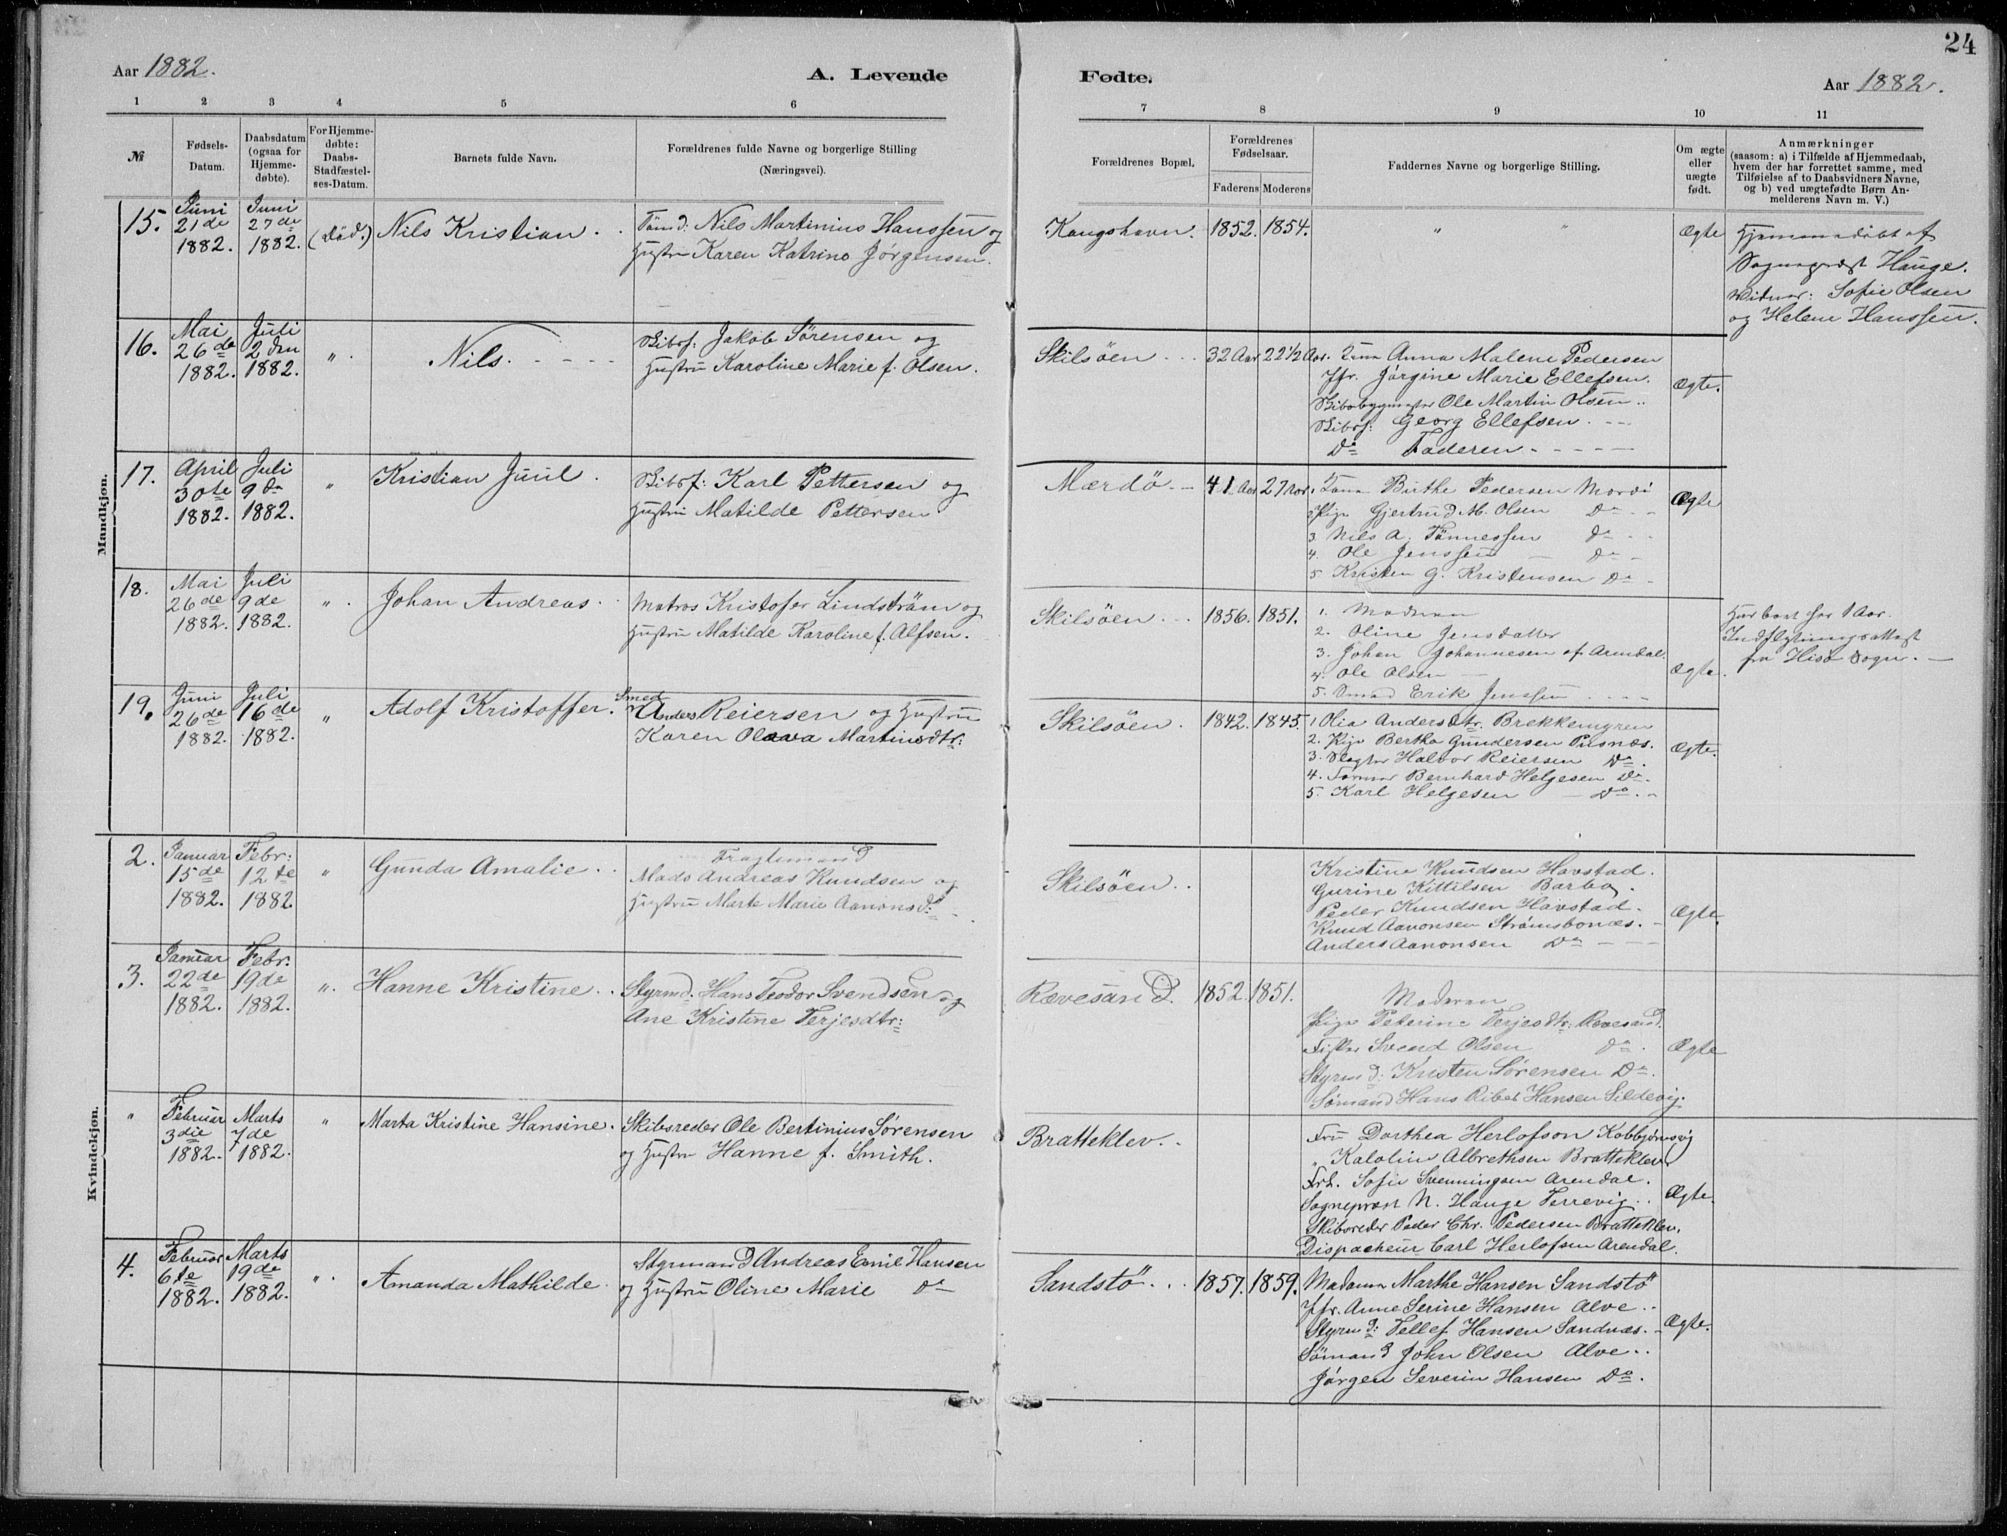 24
Aar 1882.
A. Levende
Fødte.
Aar 1882.
1 2 3 4 5 6 7 8 9 10 11
№
Fødsels-
Datum.
Daabsdatum
(ogsaa for
Hjemme-
døbte).
For Hjemme-
døbte:
Daabs-
Stadfæstel-
ses-Datum.
Barnets fulde Navn.
Forældrenes fulde Navne og borgerlige Stilling
(Næringsvei).
Forældrenes Bopæl.
Forældrenes
Fødselsaar.
Faderens Moderens
Faddernes Navne og borgerlige Stilling.
Om ægte
eller
uægte
født.
Anmærkninger
(saasom: a) i Tilfælde af Hjemmedaab,
hvem der har forrettet samme, med
Tilføielse af to Daabsvidners Navne,
og b) ved uægtefødte Børn An-
melderens Navn m. V.)
Mandkjøn.
15.
Juni
21de
1882.
Juni
27de
1882.
(død.)
Nils Kristian
Tømd: Nils Martinius Hanssen og
Hustru Karen Katrine Jørgensen.
Kongshavn.
1852. 1854.
" "
Ægte
Hjemmedøbt af
Sognepræst Hauge.
Vidner: Sofie Olsen
og Helene Hanssen.
16.
Mai
26de
1882.
Juli
2den
1882.
"
Nils.
Skibsf: Jakob Sørensen og
Hustru Karoline Marie f. Olsen.
Skilsöen
32 Aar 22 1/2 Aar.
Anna Malene Pedersen
Jfr. Jørgine Marie Ellefsen.
Skibsbygmester Ole Martin Olsen
Skibsf: Georg Ellefsen.
Do Faderen
Ægte.
17.
April
30te
1882.
Juli
9de
1882.
"
Kristian Juul
Skibsf: Karl Pettersen og
Hustru Matilde Pettersen
Mærdö
41 Aar 27 Aar.
Birthe Pedersen Mærdö
Pige Gjertrud M. Olsen Do
3 Nils A. Tønnessen Do
4. Ole Jenssen Do
5 Kristen G. Kristensen Do
Ægte
18.
Mai
26de
1882.
Juli
9de
1882.
"
Johan Andreas
Matros Kristofer Lindström og
Hustru Matilde Karoline f. Alfsen.
Skilsöen
1856. 1851.
1. Moderen
2. Oline Jensdatter
3. Johan Johannesen af Arendal.
4. Ole Olsen
5. Smed Erik Jenssen
Ægte.
Har boet her 1 Aar.
Indflytningsattest
fra Hisø Sogn.
19.
Juni
26de
1882.
Juli
16de
1882.
"
Adolf Kristoffer.
Smed
Anders Reiersen og Hustru
Karen Olava Martinsdtr:
Skilsöen.
1842. 1845.
1 Olia Andersdtr. Brekkemyren
2. Pige Bertha Gundersen Pusnæs.
3. Slagter Halvor Reiersen Do.
4. Former Bernhard Helgesen Do.
5. Karl Helgesen Do.
Ægte.
Kvindekjøn.
2.
Januar
15de
1882.
Febr:
12te
1882
"
Gunda Amalie
Fragtemand
Mads Andreas Knudsen og
Hustru Marte Marie Aanonsd:
Skilsöen
Kristine Knudsen Havstad.
Gurine Kittilsen Barbo.
Peder Knudsen Havstad.
Knud Aanonsen Strømsbonæs.
Anders Aanonsen Do
Ægte.
3.
Januar
22de
1882.
Febr.
19de
1882.
"
Hanne Kristine
Styrmd: Hans Teodor Svendsen og
Ane Kristine Terjesdtr:
Rævesand.
1852. 1851.
Moderen
Pige Peterine Terjesdtr: Rævesand.
Fisker Svend Olsen Do.
Styrmd: Kristen Sørensen Do.
Sømand Hans Ribes Hansen Sildevig.
Ægte
"
Februar
3die
1882.
Marts
7de
1882.
"
Marta Kristine Hansine.
Skibsreder Ole Bertinius Sørensen
og Hustru Hanne f. Smith.
Bratteklev.
Fru Dorthea Herlofson Kobbjørnsvig
" Karoline Albrethsen Bratteklev
Frk. Sofie Svenningsen Arendal.
Sognepræst N. Hauge Terrevig.
Skibsreder Peder Chr. Pedersen Bratteklev.
Dispacheur Carl Herlofsen Arendal.
Ægte.
4.
Februar
6te
1882.
Marts
19de
1882.
"
Amanda Mathilde
Styrmand Andreas Emil Hansen
og Hustru Oline Marie Do
Sandstö
1857. 1859.
Madam Marthe Hansen Sandstö
Jfr. Anne Serine Hansen Alve
Styrmd: Tellef Hansen Sandnæs.
Sömand John Olsen Alve
Jörgen Severin Hansen Do.
Ægte.